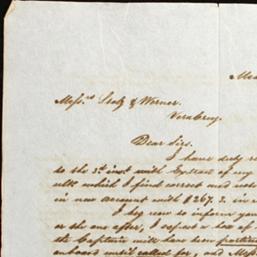 Mess.rs & Werner.
Vera Cruz.
Dear Sirs.
I have duly re
to the 3.d inst with Extract of my
which I find correct and
in new account with $267.3. in
I beg now to inform you
or the one after, I expect a box of
the Captain will have been particu
onboard until called for, and Mess